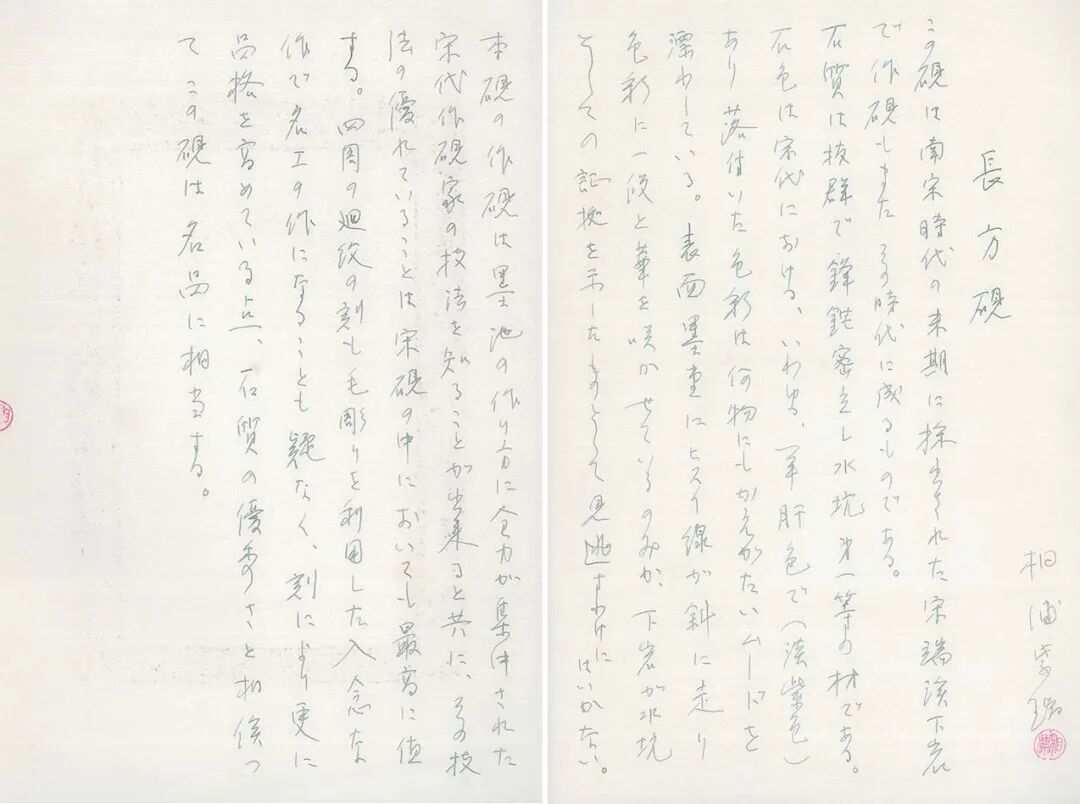 長方硯
相浦紫瑞
この硯は南宋時代の末期に採出された宋端渓下岩
で作硯もまたその時代に成るものである。
石質は抜群で鋒鋩密立し水坑第一等の材である。
石色は宋代における、いわゆる、羊肝色で(淡紫色)
あり落付いた色彩は何物にもかえがたいムードを
漂わしている。表面墨堂にヒスイ線が斜に走り
色彩に一段と華を咲かせているのみか、下岩が水坑
としての証拠を示したものとして見逃すわけにはいかない。
本硯の作硯は墨池の作り方に全力が集中された
宋代作硯家の技法を知ることが出来ると共に、その技
法の優れていることは宋硯の中においても最高に値
する。四周の廻紋の刻も毛彫りを利用した入念な
作で名工の作になることも疑なく、刻により更に
品格を高めている点、石質の優秀さと相俟っ
て この硯は名品に相当する。